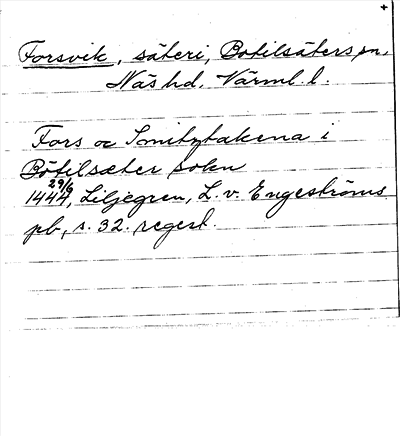 +
Forsvik, säteri, Botilsäters sn.
Näs hd. Värml. l.
Fors oc Smitzbakena i
Bótilsæter sokn
1444 29/6, Liljegren, L. v. Engeströms
pb, s. 32. regest.